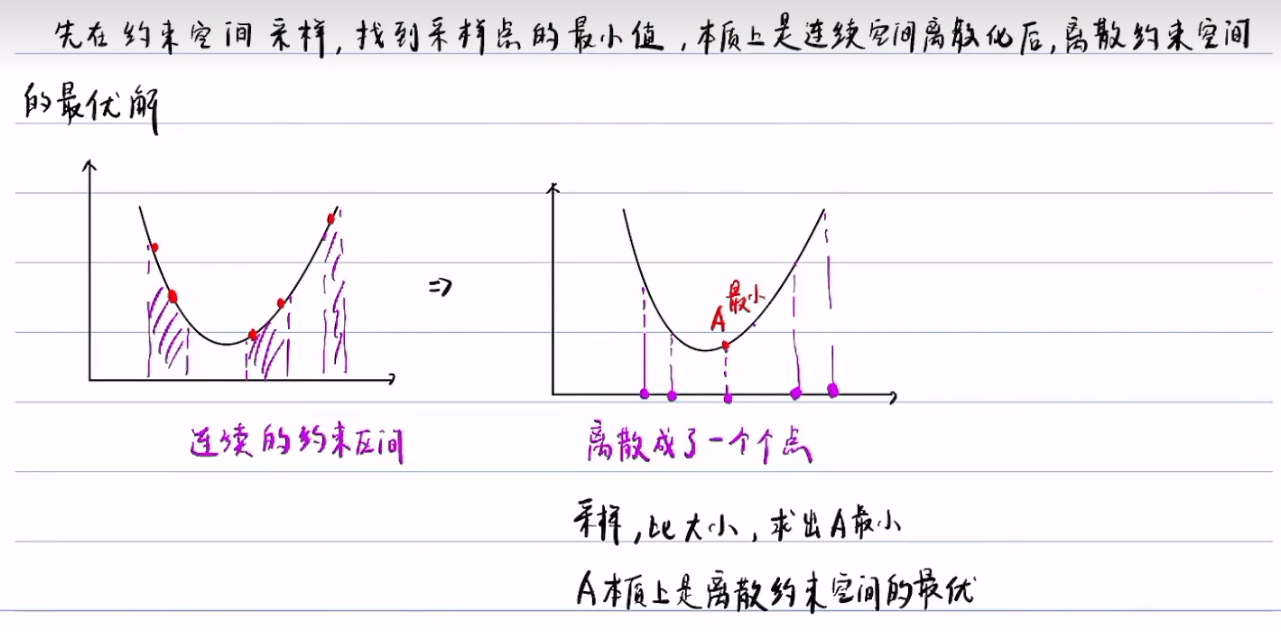 先在约束空间采样,找到采样点的最小值,本质上是连续空间离散化后,离散约束空间
的最优解
⇒
A最小
连续的约束区间
离散成了一个个点
采样,比大小,求出A最小
A本质上是离散约束空间的最优